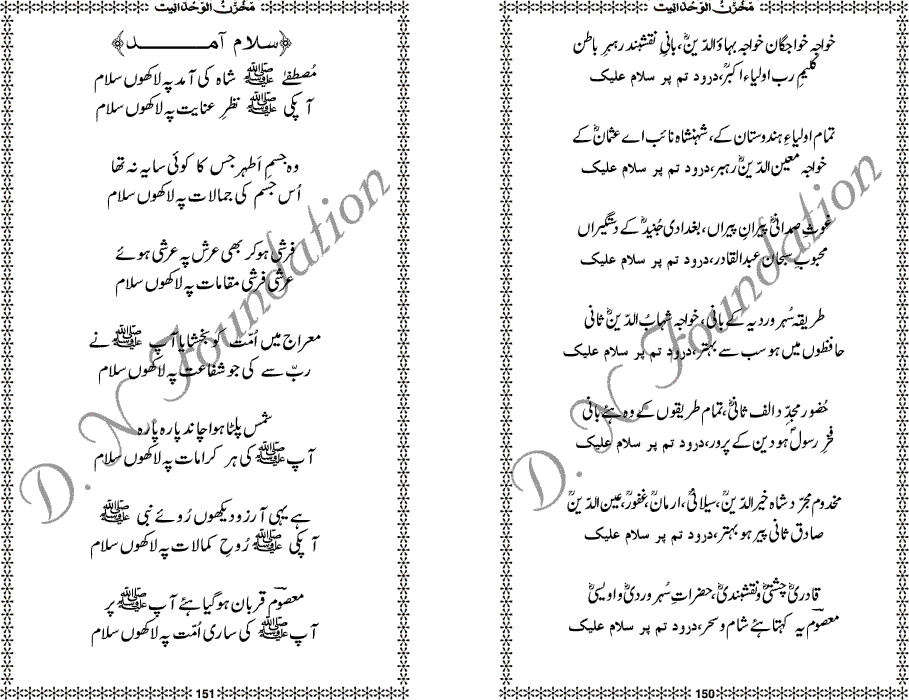 مَخْزَنُ الْوَحْدَانِیت
خواجہ خواجگان خواجہ بہاؤ الدّینؒ، بانیِ نقشبند رہبرِ باطن
کلیمِ رب اولیاءِ اکبرؒ، درود تم پر سلام علیک
تمام اولیاءِ ہندوستان کے، شہنشاہ نائب اے عثمانؓ کے
خواجہ معین الدّینؒ رہبر، درود تم پر سلام علیک
غوث صمدانیؒ پیرانِ پیراں، بغدادی جُنیدؒ کے دستگیراں
محبوبِ سبحان عبدالقادر، درود تم پر سلام علیک
طریقہ سُہروردیہ کے بانی، خواجہ شہابُ الدّینؒ ثانی
حافظوں میں ہو سب سے بہتر، درود تم پر سلام علیک
حُضور مجدِّد الف ثانیؒ، تمام طریقوں کے وہ ہئے بانی
فخرِ رسولؐ ہو دین کے پرور، درود تم پر سلام علیک
مخدوم مجرّد شاہ خیرالدّینؒ، سیلانیؒ، ارمانؒ، غفورؒ، عین الدّینؒ
صادق ثانی پیر ہو بہتر، درود تم پر سلام علیک
قادریؒ چشتیؒ و نقشبندیؒ، حضراتِ سُہروردیؒ و اویسیؒ
معصومؔ یہ کہتا ہئے شام و سحر، درود تم پر سلام علیک
150
مَخْزَنُ الْوَحْدَانِیت
﴿سلام آمد﴾
مُصطفےٰ ﷺ شاہ کی آمد پہ لاکھوں سلام
آپکی ﷺ نظرِ عنایت پہ لاکھوں سلام
وہ جسمِ اَطہر جس کا کوئی سایہ نہ تھا
اُس جسم کی جمالات پہ لاکھوں سلام
فرشی ہو کر بھی عرش پہ عرشی ہوئے
عرشی فرشی مقامات پہ لاکھوں سلام
معراج میں اُمّت کو بخشایا آپ ﷺ نے
ربّ سے کی جو شفاعت پہ لاکھوں سلام
شمس پلٹا ہوا چاند پارہ پارہ
آپ ﷺ کی ہر کرامات پہ لاکھوں سلام
ہے یہی آرزو دیکھوں رُوئے نبی ﷺ
آپکی ﷺ رُوحِ کمالات پہ لاکھوں سلام
معصومؔ قربان ہوگیا ہئے آپ ﷺ پر
آپ ﷺ کی ساری اُمّت پہ لاکھوں سلام
151
D. N. Foundation
D. N. Foundation